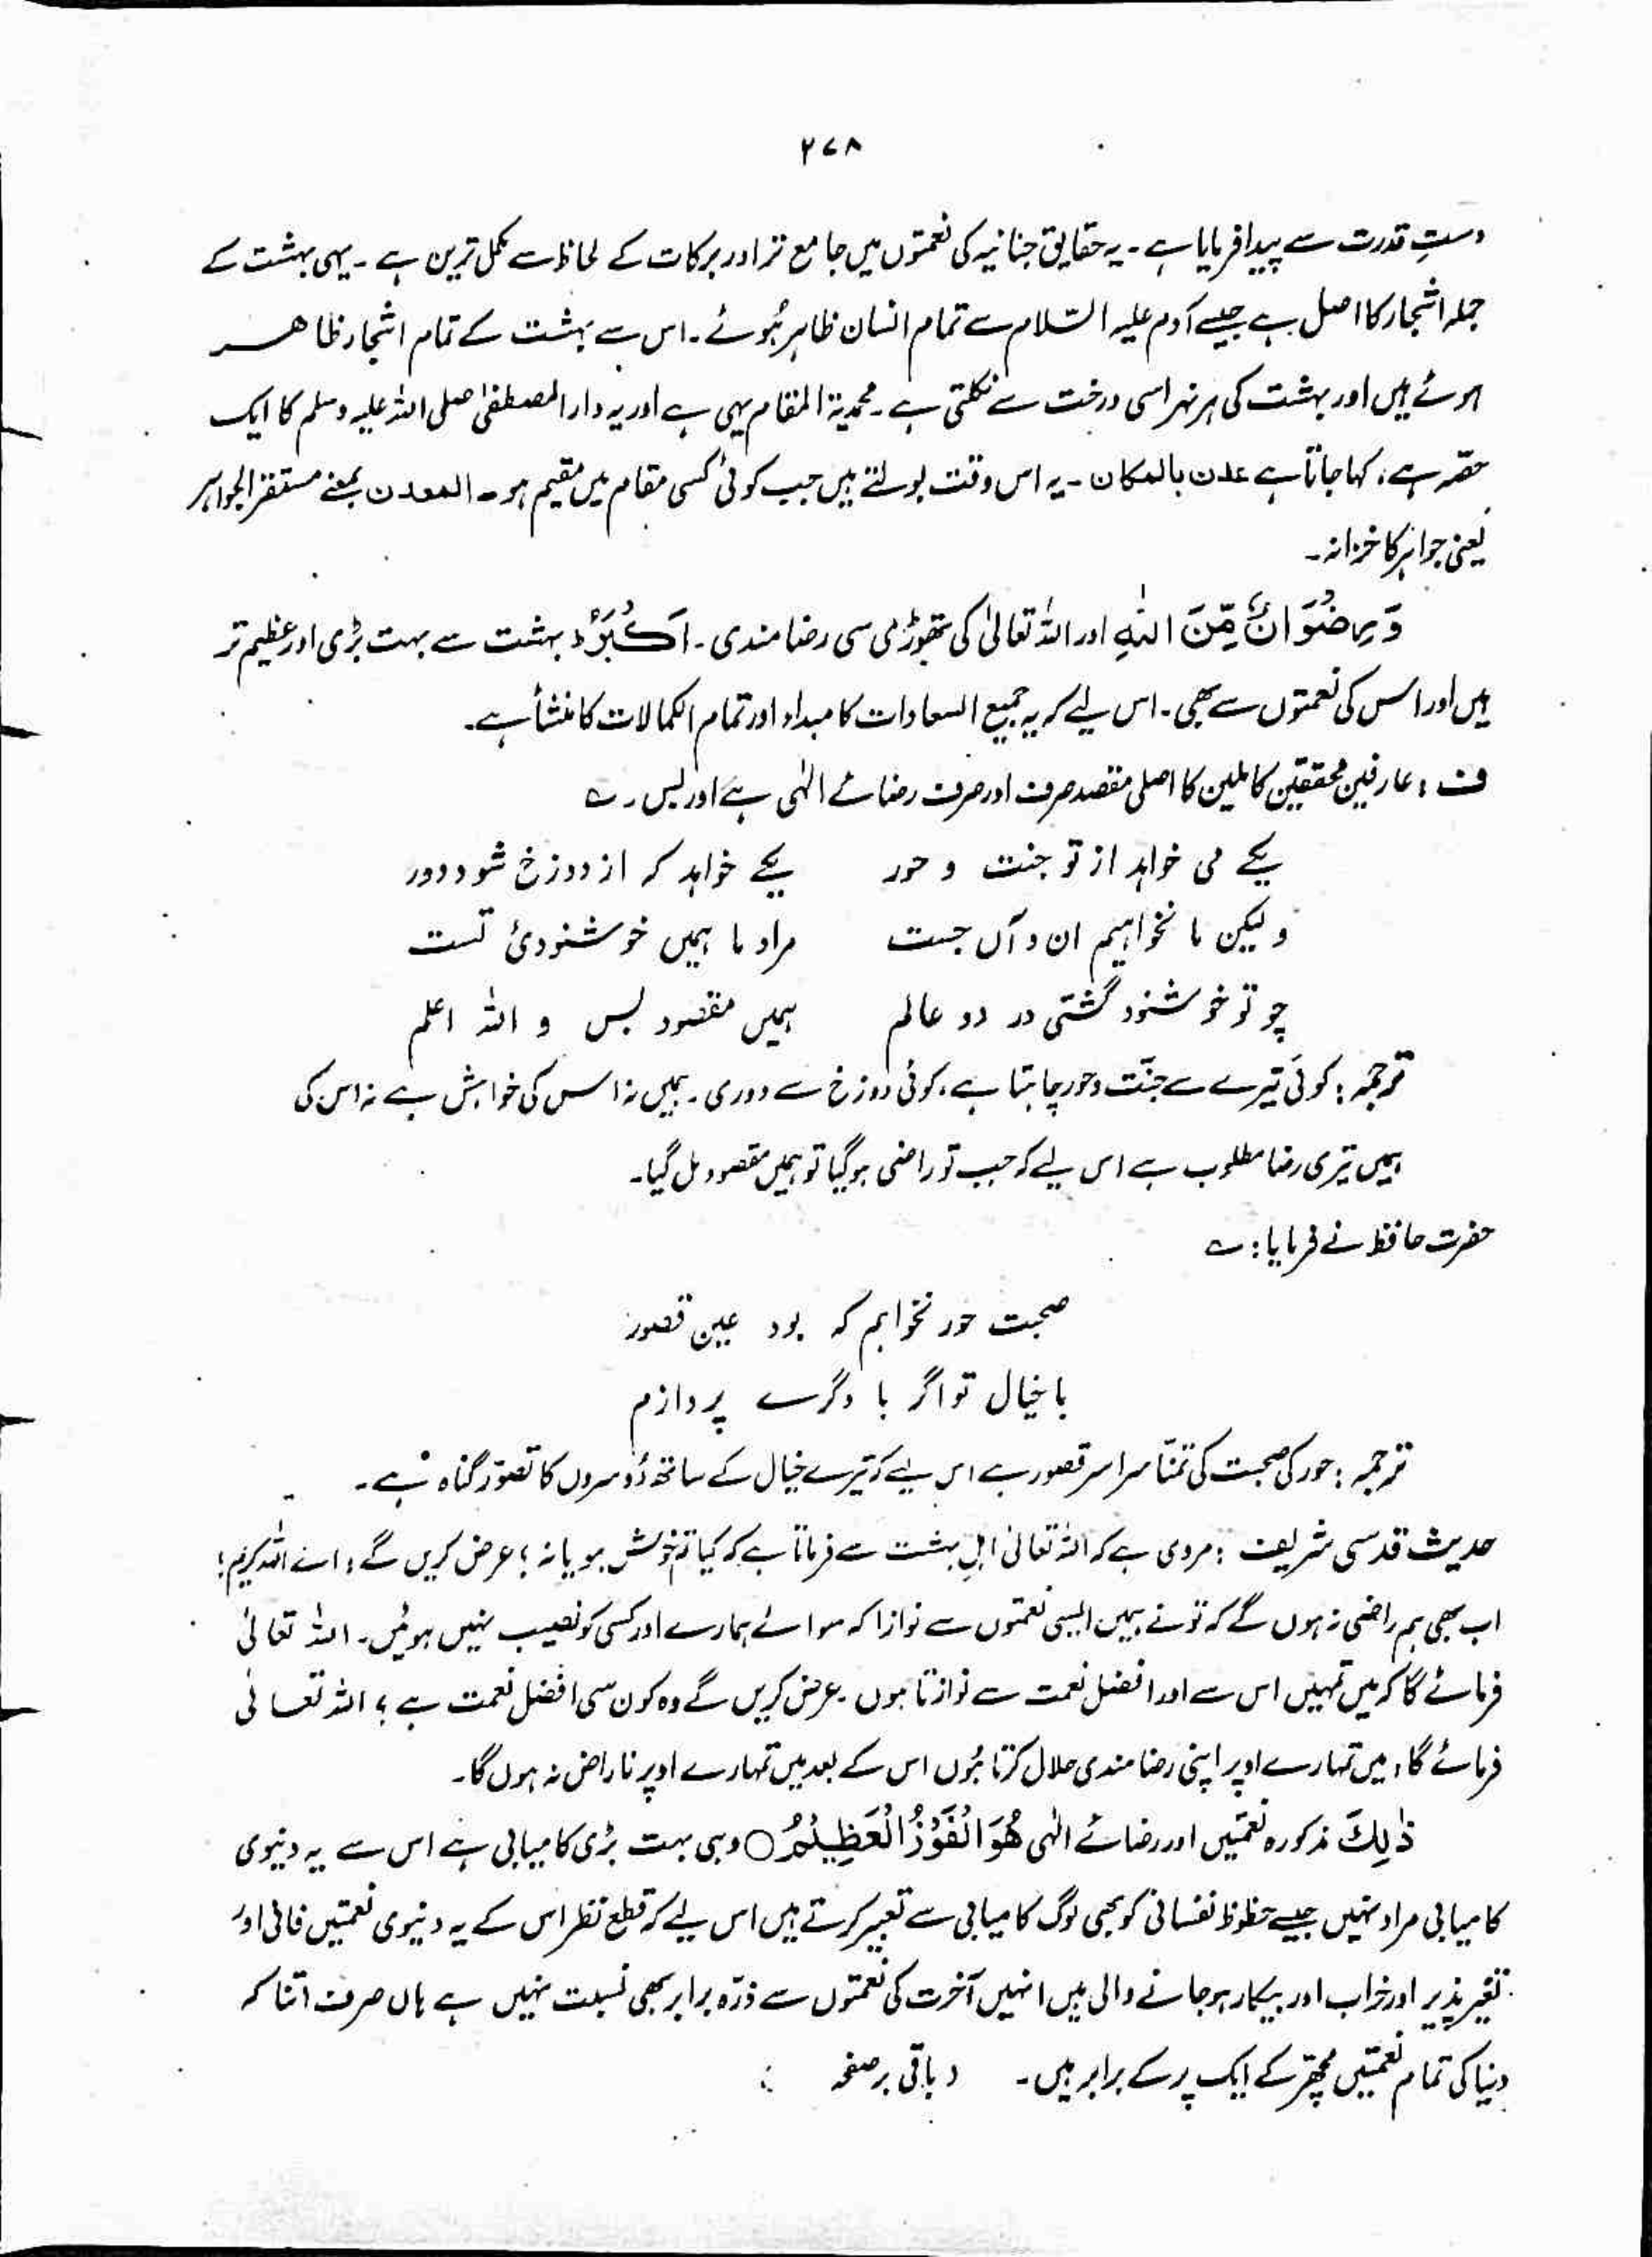 ۲۷۸
دستِ قدرت سے پیدا فرمایا ہے ۔ یہ حقایق جنانیہ کی نعمتوں میں جامع تر اور برکات کے لحاظ سے مکمل ترین ہے ۔ یہی بہشت کے
جملہ اشجار کا اصل ہے جیسے آدم علیہ السّلام سے تمام انسان ظاہر ہُوئے ۔ اس سے بہشت کے تمام اشجار ظاہر
ہوئے ہیں اور بہشت کی ہر نہر اسی درخت سے نکلتی ہے ۔ محمدیۃ المقام یہی ہے اور یہ دار المصطفیٰ صلی اللہ علیہ وسلم کا ایک
حصّہ ہے ، کہا جاتا ہے عدن بالمکان ۔ یہ اس وقت بولتے ہیں جب کوئی کسی مقام میں مقیم ہو ۔ المعدن بمعنے مستقر الجواہر
یعنی جواہر کا خزانہ ۔
وَرِضْوَانٌ مِّنَ اللّٰهِ اور اللہ تعالیٰ کی تھوڑی سی رضا مندی ۔ اَكْبَرُ ؕ بہشت سے بہت بڑی اور عظیم تر
ہیں اور اس کی نعمتوں سے بھی ۔ اس لیے کہ یہ جمیع السعادات کا مبداء اور تمام الکمالات کا منشأ ہے ۔
ف : عارفین محققین کاملین کا اصلی مقصد صرف اور صرف رضائے الٰہی ہے اور بس ۔ ؎
یکے می خواہد از تو جنت و حور یکے خواہد کہ از دوزخ شود دور
ولیکن ما نخواہیم ان و آں جست مراد ما ہمیں خوشنودیٔ تست
چو تو خوشنود گشتی در دو عالم ہمیں مقصود بس و اللہ اعلم
ترجمہ : کوئی تیرے سے جنّت و حور چاہتا ہے ، کوئی دوزخ سے دوری ۔ ہمیں نہ اس کی خواہش ہے نہ اس کی
ہمیں تیری رضا مطلوب ہے اس لیے کہ جب تو راضی ہوگیا تو ہمیں مقصود مل گیا ۔
حضرت حافظ نے فرمایا : ؎
صحبت حور نخواہم کہ بود عین قصور
با خیال تو اگر با دگرے پردازم
ترجمہ : حور کی صحبت کی تمنّا سراسر قصور ہے اس لیے کہ تیرے خیال کے ساتھ دُوسروں کا تصوّر گناہ ہے ۔
حدیث قدسی شریف : مروی ہے کہ اللہ تعالیٰ اہلِ بہشت سے فرماتا ہے کہ کیا تم خوش ہو یا نہ ؟ عرض کریں گے : اے اللہ کریم !
اب بھی ہم راضی نہ ہوں گے کہ تو نے ہمیں ایسی نعمتوں سے نوازا کہ سوائے ہمارے اور کسی کو نصیب نہیں ہوئیں ۔ اللہ تعالیٰ
فرمائے گا کہ میں تمہیں اس سے اور افضل نعمت سے نوازتا ہوں ۔ عرض کریں گے وہ کون سی افضل نعمت ہے ؟ اللہ تعالیٰ
فرمائے گا ، میں تمہارے اوپر اپنی رضا مندی حلال کرتا ہُوں اس کے بعد میں تمہارے اوپر ناراض نہ ہوں گا ۔
ذٰلِكَ مذکورہ نعمتیں اور رضائے الٰہی هُوَ الْفَوْزُ الْعَظِيْمُ ○ وہی بہت بڑی کامیابی ہے اس سے یہ دنیوی
کامیابی مراد نہیں جیسے حظوظ نفسانی کو بھی لوگ کامیابی سے تعبیر کرتے ہیں اس لیے کہ قطع نظر اس کے یہ دنیوی نعمتیں فانی اور
تغیر پذیر اور خراب اور بیکار ہو جانے والی ہیں انہیں آخرت کی نعمتوں سے ذرّہ برابر بھی نسبت نہیں ہے ہاں صرف اتنا کہ
دنیا کی تمام نعمتیں مچھّر کے ایک پر کے برابر ہیں ۔ ( باقی بر صفحہ